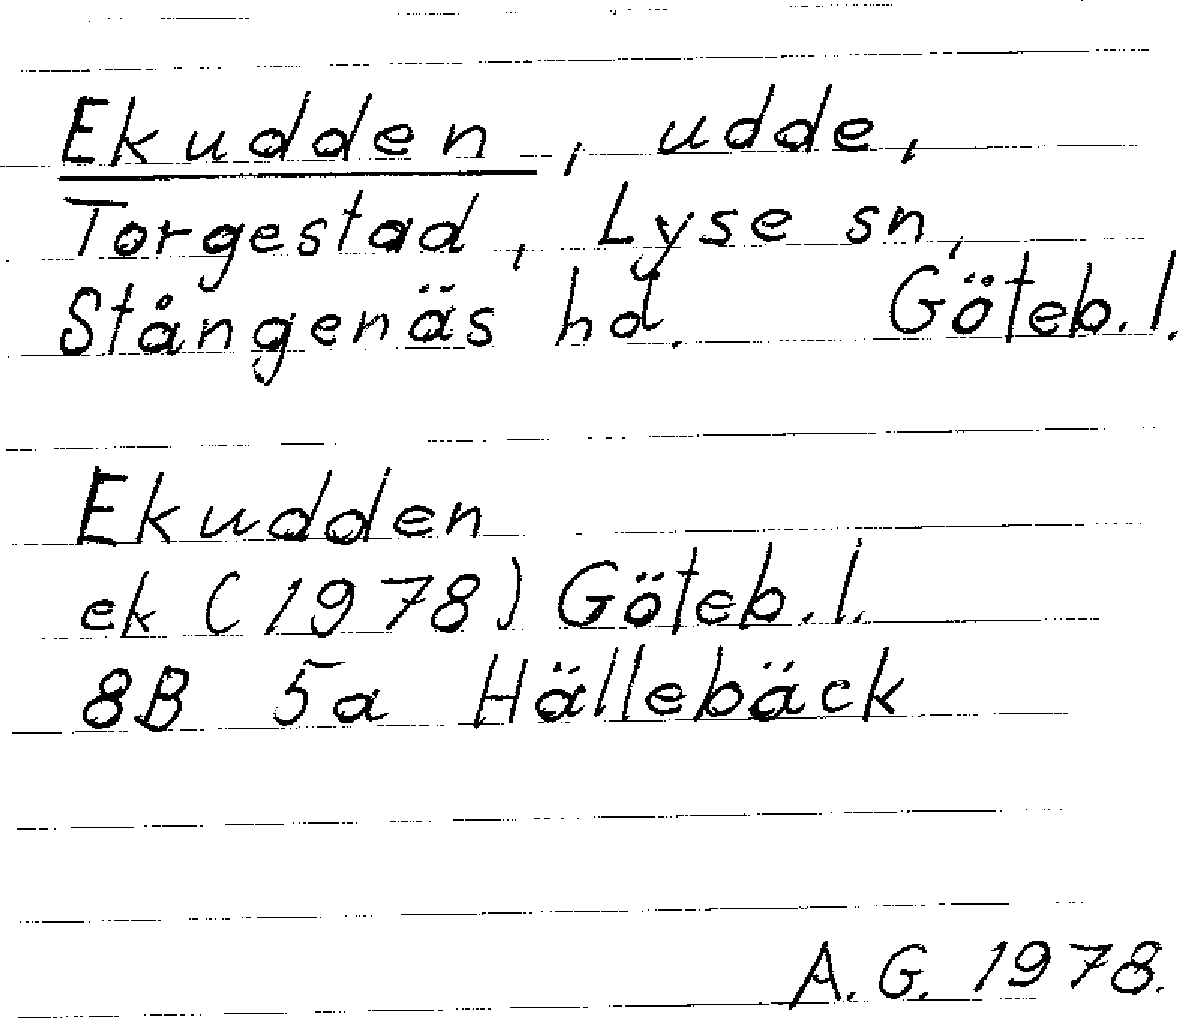 Ekudden, udde,
Torgestad, Lyse sn,
Stångenäs hd. Göteb. l.
Ekudden
ek (1978) Göteb. l.
8B 5a Hällebäck
A. G. 1978.